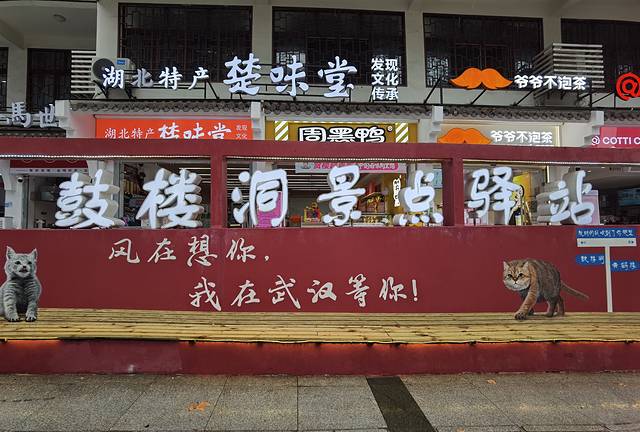 湖北特产 楚味堂 发现
文化
传承
爷爷不泡茶
馬世
湖北特产 楚味堂 发现
文化
周黑鸭
爷爷不泡茶
COTTI C
鼓楼洞景点驿站
风在想你，
我在武汉等你！